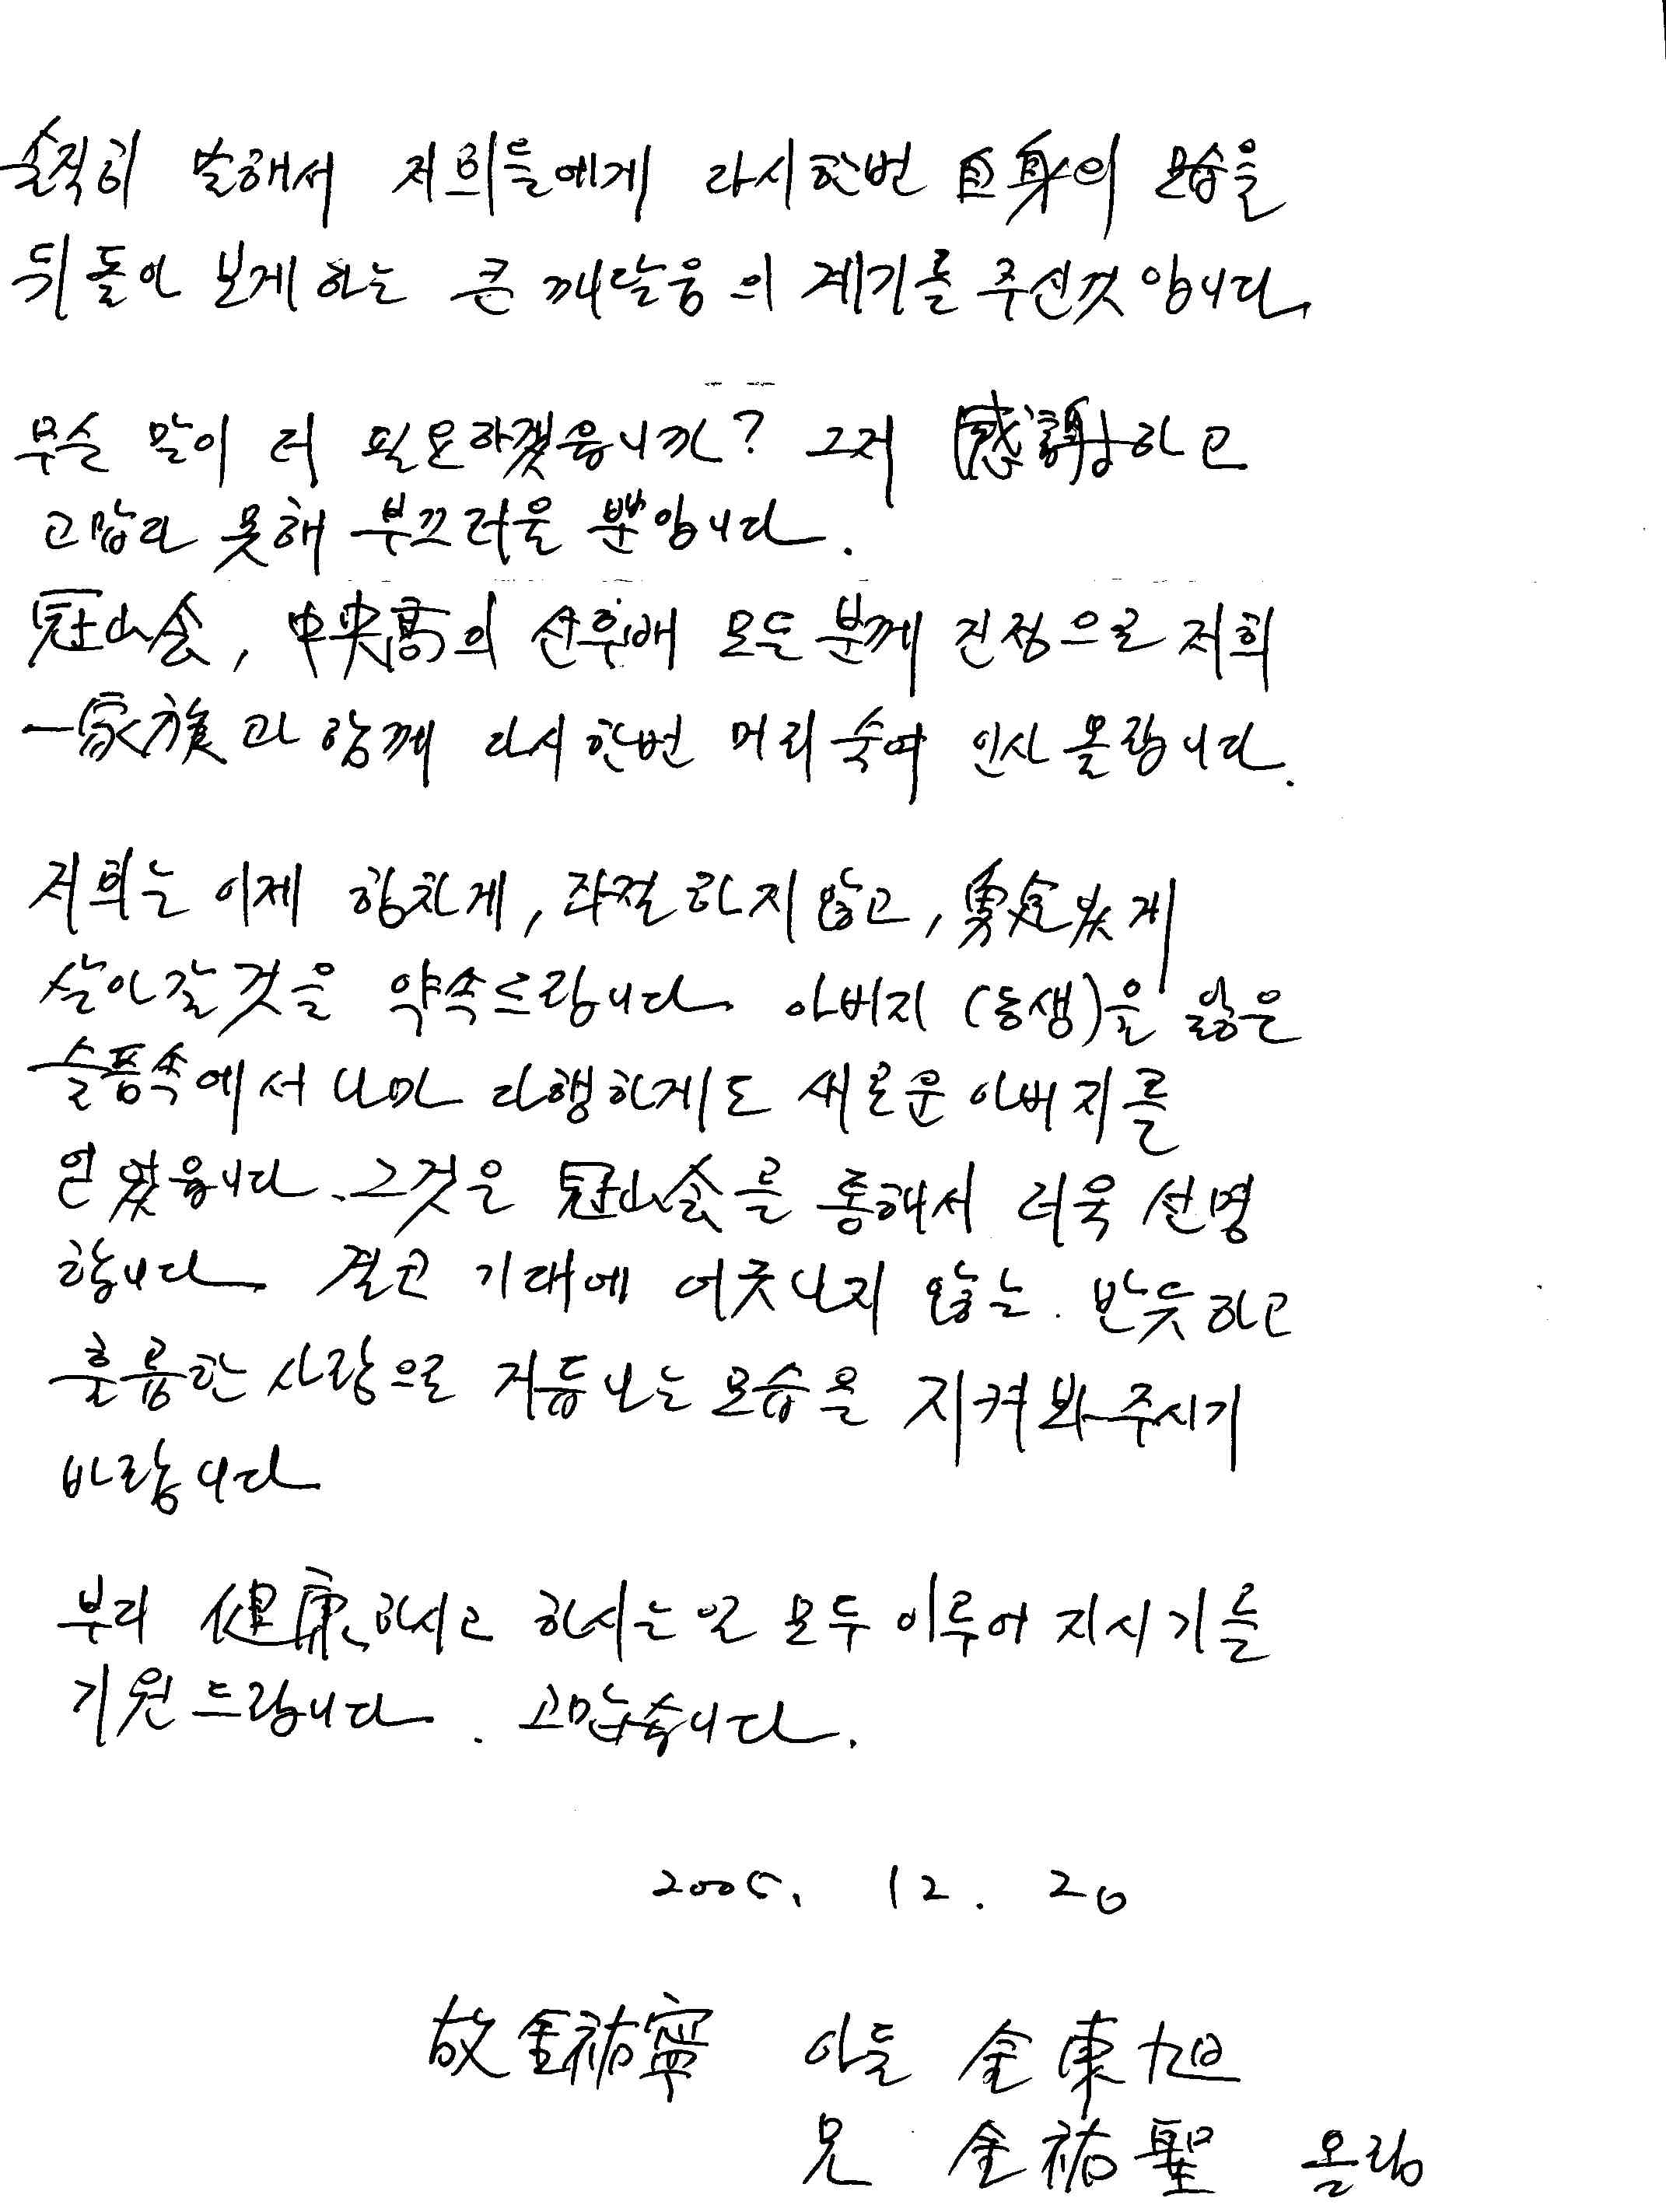 솔직히 말해서 저희들에게 다시한번 自身의 모습을
뒤돌아 보게하는 큰 깨달음의 계기를 주신것 입니다.
무슨 말이 더 필요하겠읍니까? 그저 感謝하고
고맙다 못해 부끄러울 뿐입니다.
冠山会, 中央高의 선후배 모든분께 진정으로 저희
一家族과 함께 다시한번 머리숙여 인사 올립니다.
저희는 이제 힘차게, 좌절하지 않고, 勇気있게
살아갈것을 약속드립니다. 아버지 (동생)을 잃은
슬픔속에서나마 다행하게도 새로운 아버지를
얻었읍니다. 그것은 冠山会를 통해서 더욱 선명
합니다. 결코 기대에 어긋나지 않는. 반듯하고
훌륭한 사람으로 거듭나는 모습을 지켜봐주시기
바랍니다
부디 健康하시고 하시는일 모두 이루어 지시기를
기원드립니다. 고맙습니다.
2005. 12. 20
故 金祐寧 아들 金東旭
兄 金祐聖 올림